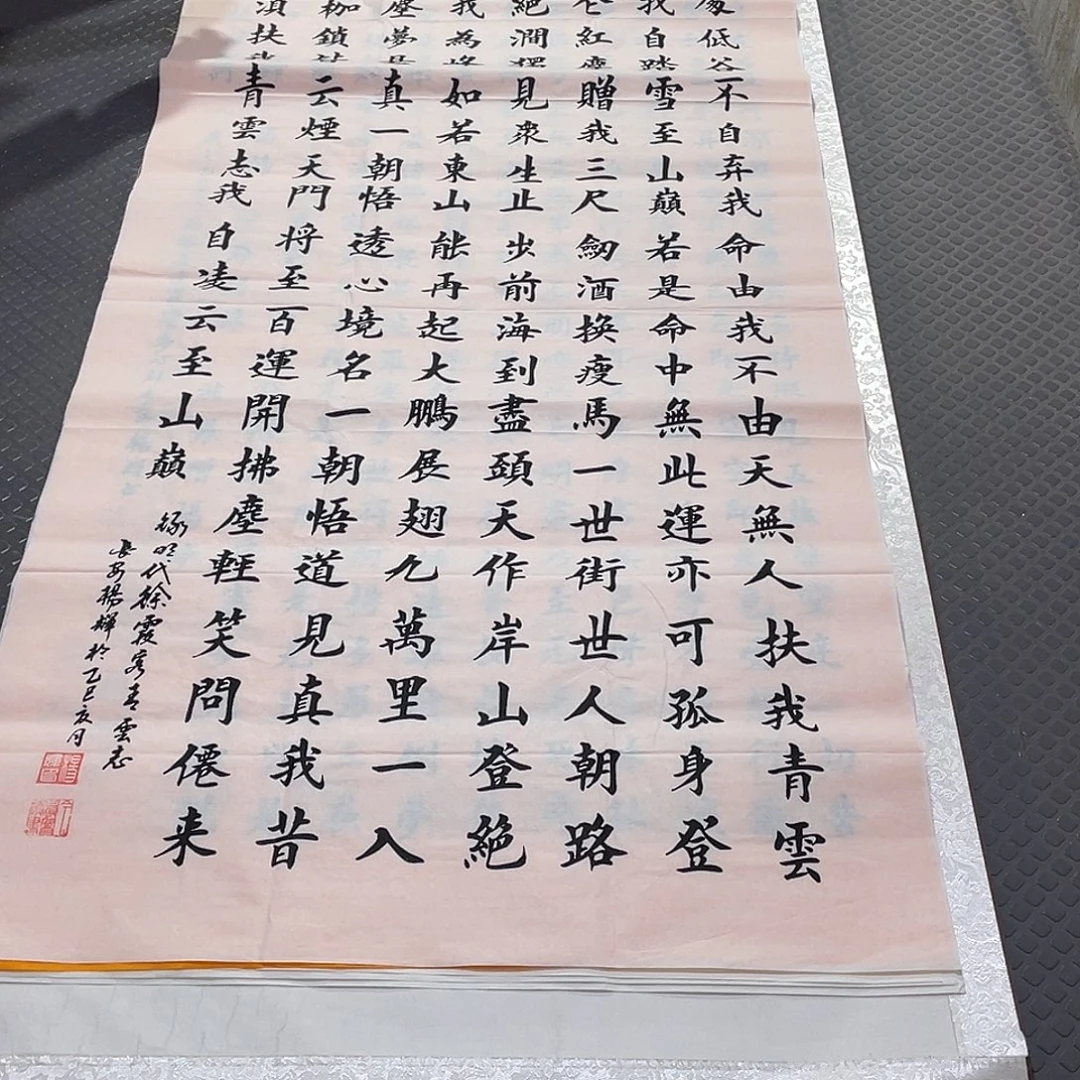 處低谷不自弃我命由我不由天無人扶我青雲
我自踏雪至山巔若是命中無此運亦可孤身登
紅塵贈我三尺劒酒換瘦馬一世街世人朝路
絕澗擇見衆生止步前海到盡頭天作岸山登絕
我為峰如若東山能再起大鵬展翅九萬里一入
塵夢是真一朝悟透心境名一朝悟道見真我昔
枷鎖皆云煙天門将至百運開拂塵輕笑問僊来
須扶我青雲志我自凌云至山巔
錄明代徐霞客青雲志
長安楊輝於乙巳夏月